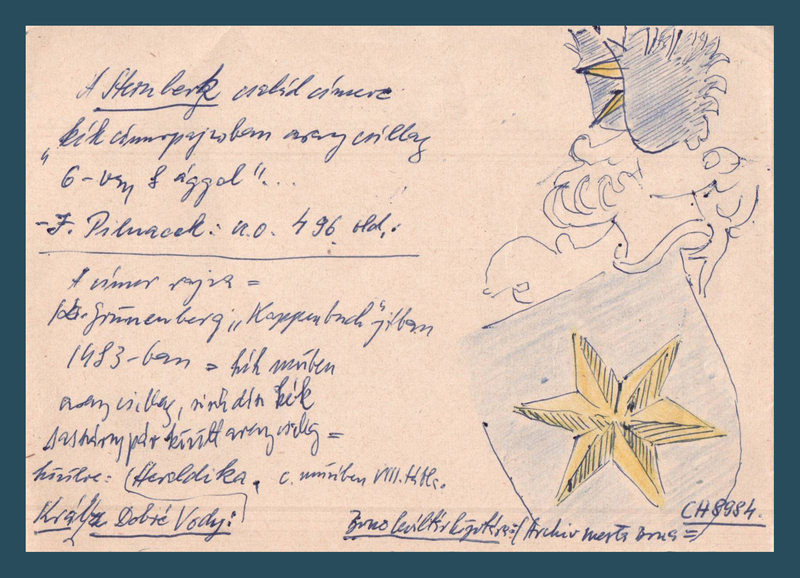 A Sternberk család címere
"kék címerpajzsban arany csillag
6-vagy 8 ággal"...
- J. Pilnacek: u.o. 496 old.:
A címer rajza =
Grünenberg "Wappenbuch"-jában
1483-ban = kék mezőben
arany csillag, sisakdísz kék
sasszárnypár között arany csillag =
közölve: (Heraldika. c. művében VIII. tábla.
Král z Dobré Vody:
Brno levéltár képtára = (Archiv mesta Brna =)
CH 8984.